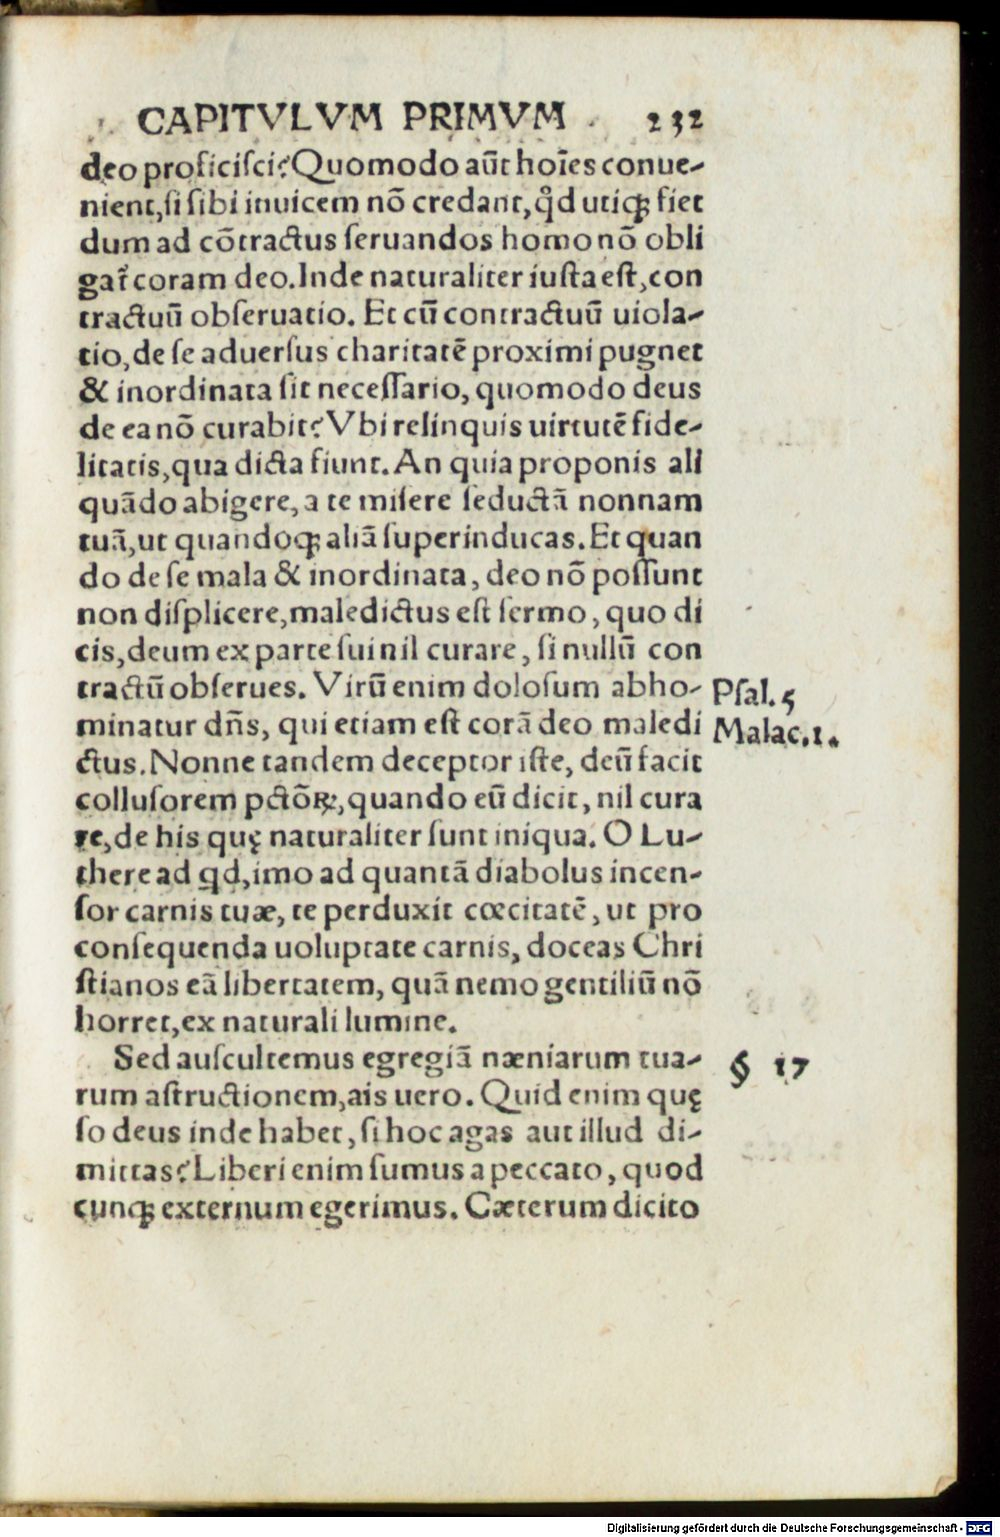 CAPITVLVM PRIMVM 232
deo proficiſci? Quomodo aūt hoīes conue-
nient, ſi ſibi inuicem nō credant, qd̉ utiqꝫ fiet
dum ad cōtractus ſeruandos homo nō obli
gat᷑ coram deo. Inde naturaliter iuſta eſt, con
tractuū obſeruatio. Et cū contractuū uiola-
tio, de ſe aduerſus charitatē proximi pugnet
& inordinata ſit neceſſario, quomodo deus
de ea nō curabit? Vbi relinquis uirtutē fide-
litatis, qua dicta fiunt. An quia proponis ali
quādo abigere, a te miſere ſeductā nonnam
tuā, ut quandoqꝫ aliā ſuperinducas. Et quan
do de ſe mala & inordinata, deo nō poſſunt
non diſplicere, maledictus eſt ſermo, quo di
cis, deum ex parte ſui nil curare, ſi nullū con
tractū obſerues. Virū enim doloſum abho- Pſal. 5
minatur dn̄s, qui etiam eſt corā deo maledi Malac. 1.
ctus. Nonne tandem deceptor iſte, deū facit
colluſorem pctōꝝ, quando eū dicit, nil cura
re, de his quę naturaliter ſunt iniqua. O Lu-
there ad qd, imo ad quantā diabolus incen-
ſor carnis tuæ, te perduxit cœcitatē, ut pro
conſequenda uoluptate carnis, doceas Chri
ſtianos eā libertatem, quā nemo gentiliū nō
horret, ex naturali lumine.
Sed auſcultemus egregiā næniarum tua- § 17
rum aſtructionem, ais uero. Quid enim quę
ſo deus inde habet, ſi hoc agas aut illud di-
mittas? Liberi enim ſumus a peccato, quod
cunqꝫ externum egerimus. Cæterum dicito
Digitalisierung gefördert durch die Deutsche Forschungsgemeinschaft - DFG